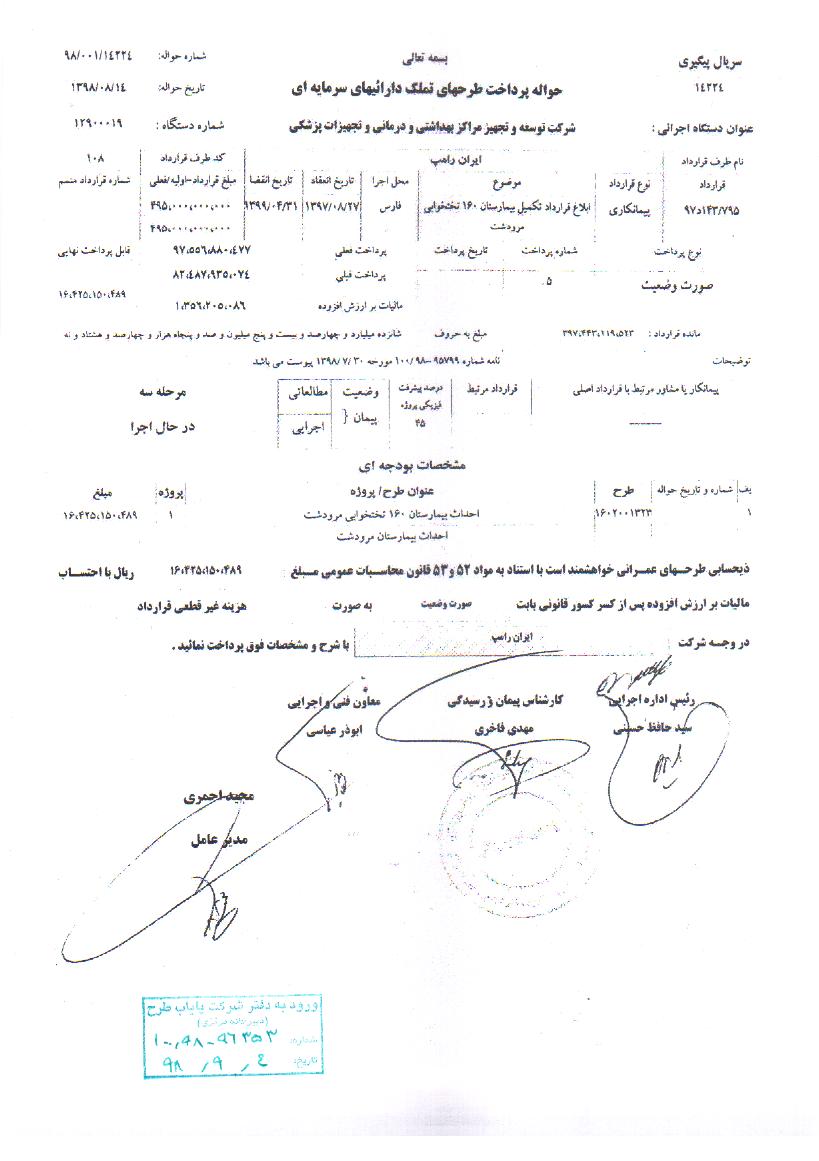 بسمه تعالی
سریال پیگیری
۱۴۲۲۴
شماره حواله: ۹۸/۰۰۱/۱۴۲۲۴
حواله پرداخت طرحهای تملک دارائیهای سرمایه ای
تاریخ حواله: ۱۳۹۸/۰۸/۱۴
عنوان دستگاه اجرائی : شرکت توسعه و تجهیز مراکز بهداشتی و درمانی و تجهیزات پزشکی شماره دستگاه : ۱۲۹۰۰۰۱۹
نام طرف قرارداد ایران رامپ کد طرف قرارداد ۱۰۸
قرارداد نوع قرارداد موضوع محل اجرا تاریخ انعقاد تاریخ انقضا مبلغ قرارداد-اولیه/فعلی شماره قرارداد متمم
۹۷د۱۴۳/۷۹۵ پیمانکاری ابلاغ قرارداد تکمیل بیمارستان ۱۶۰ تختخوابی فارس ۱۳۹۷/۰۸/۲۷ ۱۳۹۹/۰۴/۳۱ ۴۹۵،۰۰۰,۰۰۰,۰۰۰
مرودشت ۴۹۵،۰۰۰,۰۰۰,۰۰۰
نوع پرداخت شماره پرداخت تاریخ پرداخت پرداخت فعلی ۹۷،۵۵۶،۸۸۰،۴۷۷ قابل پرداخت نهایی
صورت وضعیت ۵ پرداخت قبلی ۸۲،۴۸۷،۹۳۵،۰۷۴
مالیات بر ارزش افزوده ۱،۳۵۶،۲۰۵،۰۸۶ ۱۶،۴۲۵،۱۵۰،۴۸۹
مانده قرارداد : ۳۹۷،۴۴۳،۱۱۹,۵۲۳ مبلغ به حروف شانزده میلیارد و چهارصد و بیست و پنج میلیون و صد و پنجاه هزار و چهارصد و هشتاد و نه
توضیحات نامه شماره ۹۵۷۹۹-۱۰۰/۹۸ مورحه ۳۰ /۷ /۱۳۹۸ پیوست می باشد
پیمانکار یا مشاور مرتبط با قرارداد اصلی قرارداد مرتبط درصد پیشرفت فیزیکی پروژه ۴۵ وضعیت پیمان { مطالعاتی مرحله سه
اجرایی در حال اجرا
مشخصات بودجه ای
یف شماره و تاریخ حواله طرح عنوان طرح/ پروژه پروژه مبلغ
۱ ۱۶۰۲۰۰۱۳۲۳ احداث بیمارستان ۱۶۰ تختخوابی مرودشت ۱ ۱۶،۴۲۵،۱۵۰،۴۸۹
احداث بیمارستان مرودشت
ذیحسابی طرحهای عمرانی خواهشمند است با استناد به مواد ۵۲ و ۵۳ قانون محاسبات عمومی مبلغ ۱۶،۴۲۵،۱۵۰،۴۸۹ ریال با احتساب
مالیات بر ارزش افزوده پس از کسر کسور قانونی بابت صورت وضعیت به صورت هزینه غیر قطعی قرارداد
در وجه شرکت ایران رامپ با شرح و مشخصات فوق پرداخت نمائید .
رئیس اداره اجرایی کارشناس پیمان و رسیدگی معاون فنی و اجرایی
سید حافظ حسنی مهدی فاخری ابوذر عباسی
مجید احمری
مدیر عامل
ورود به دفتر شرکت پایاب طرح
(دبیرخانه مرکزی)
شماره: ۱۰۰٫۹۸-۹۶۳۵۳
تاریخ: ۹۸٫۹٫۴